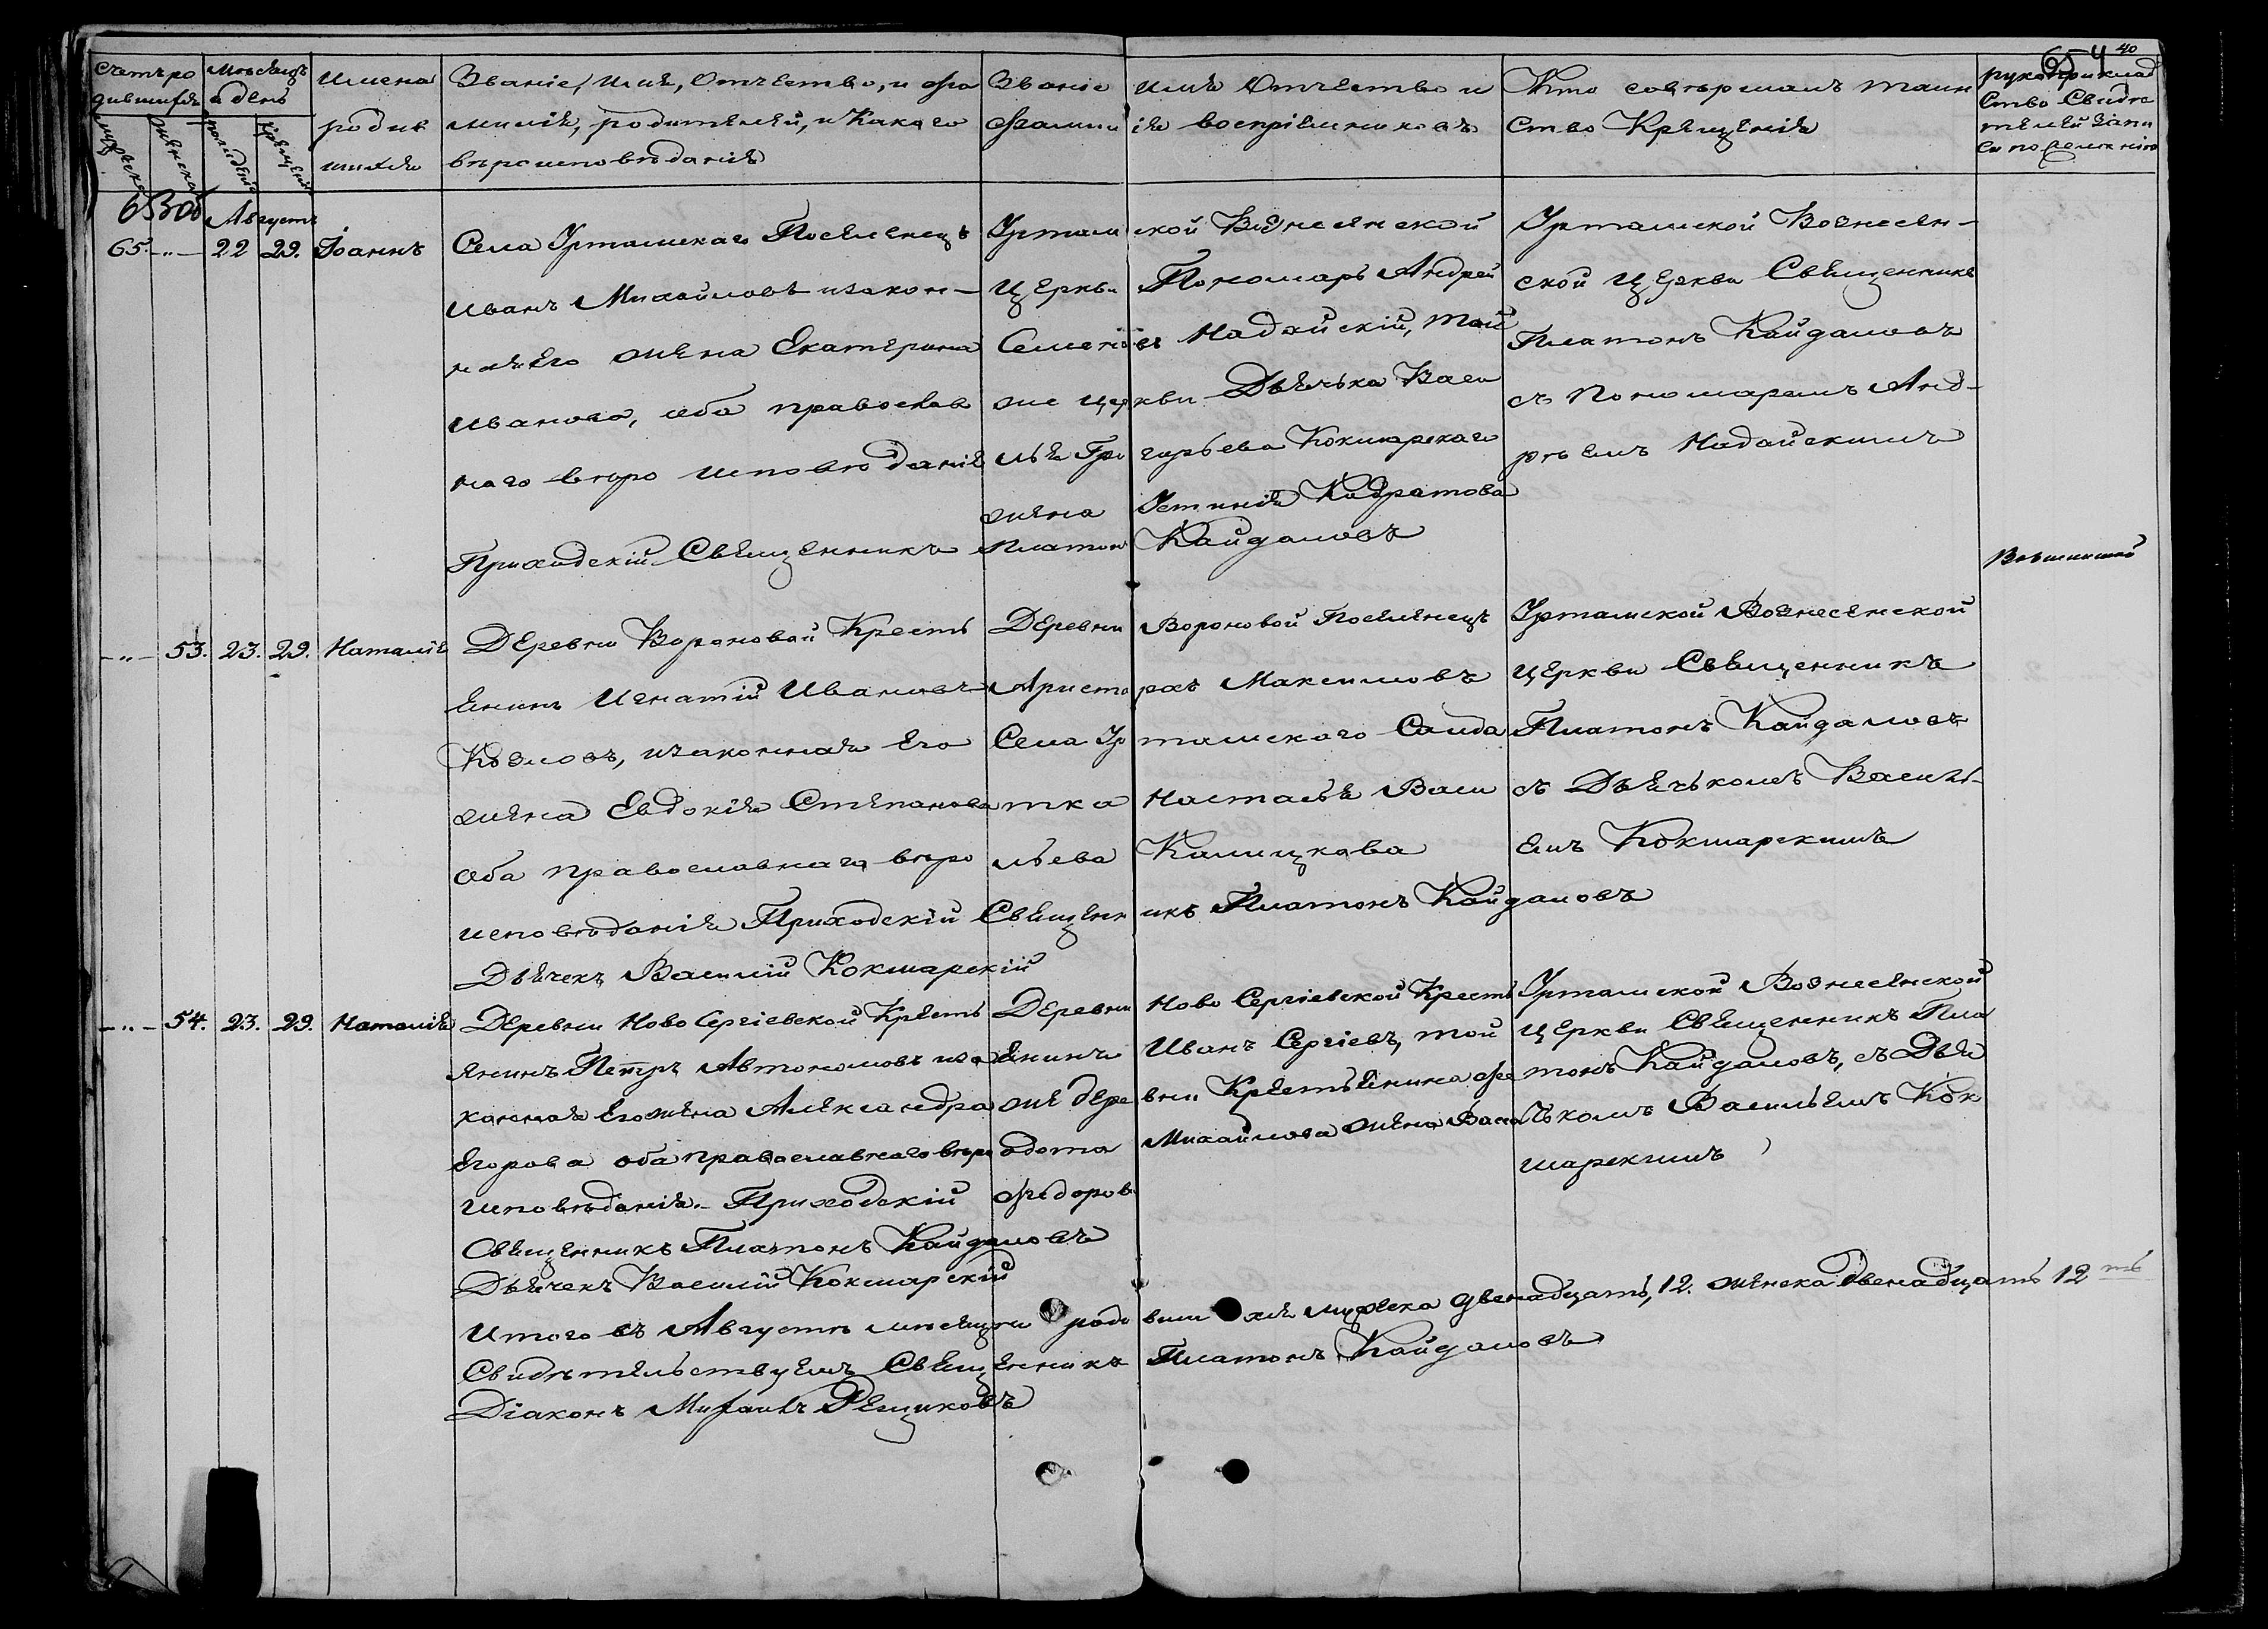 40
654
Счетъ ро
дившихся
Мѣсяцъ
и день
мужеска
женска
рожденія
крещенія
Имена
родив
шихся
Званіе, имя, Отчество, и фа
милія, родителей, и Какого
вѣроисповѣданія
Званіе имя Отчество и
Фамилія воспріемниковъ
Кто совершалъ таин
ство Крещенія
рукоприклад
Ство Свидѣ
телей запи
си по желанію
Августъ
65. -"- 22 29. Іоаннъ
Села Уртамскаго Поселенецъ
Иванъ Михайловъ и закон-
ная Его жена Екатерина
Иванова, оба православ
наго вѣро исповѣданія
Приходскій Священникъ Платонъ Кайдаловъ
Уртамской Вознесенской
Церкви Пономарь Андрей
Семеновъ Надайскій, той
же церкви Дьячька Васи
лья Григорьева Кокшарскаго
жена Устинія Кодратова
Уртамской Вознесен-
ской Церкви Священникъ
Платонъ Кайдаловъ
съ Пономаремъ Анд-
рѣемъ Надайскимъ
-"- 53. 23. 29. Наталія
Деревни Вороновой Кресть
янинъ Игнатій Ивановъ
Козловъ, и законная Его
жена Евдокія Степанова
оба православнаго вѣро
исповѣданія Приходскій Священникъ Платонъ Кайдаловъ
Дьячекъ Василій Кокшарскій
Деревни Вороновой Поселенецъ
Аристархъ Максимовъ
Села Уртамского Солда
тка Настасья Васи
льева Калицкова
Уртамской Вознесенской
Церкви Священникъ
Платонъ Кайдаловъ
съ Дьячькомъ Василь-
емъ Кокшарскимъ
-"- 54. 23. 29. Наталія
Деревни Ново Сергіевской Кресть
янинъ Петръ Автономовъ и за
конная Его жена Александра
Егорова оба православнаго вѣро
исповѣданія. Приходскій
Священникъ Платонъ Кайдаловъ
Дьячекъ Василій Кокшарскій
Деревни Ново Сергіевской Кресть
янинъ Иванъ Сергіевъ, той
же деревни Крестьянина Фе
одота Михайлова жена Васа
Федорова
Уртамской Вознесенской
Церкви Священникъ Пла
тонъ Кайдаловъ, съ Дья
чькомъ Васильемъ Кок
шарскимъ
Итого въ Августѣ мѣсяцѣ родившихся мужеска двенадцать, 12. женска двенадцать 12ть
Свидѣтельствуемъ Священникъ Платонъ Кайдаловъ
Діаконъ Михаилъ Рещиковъ